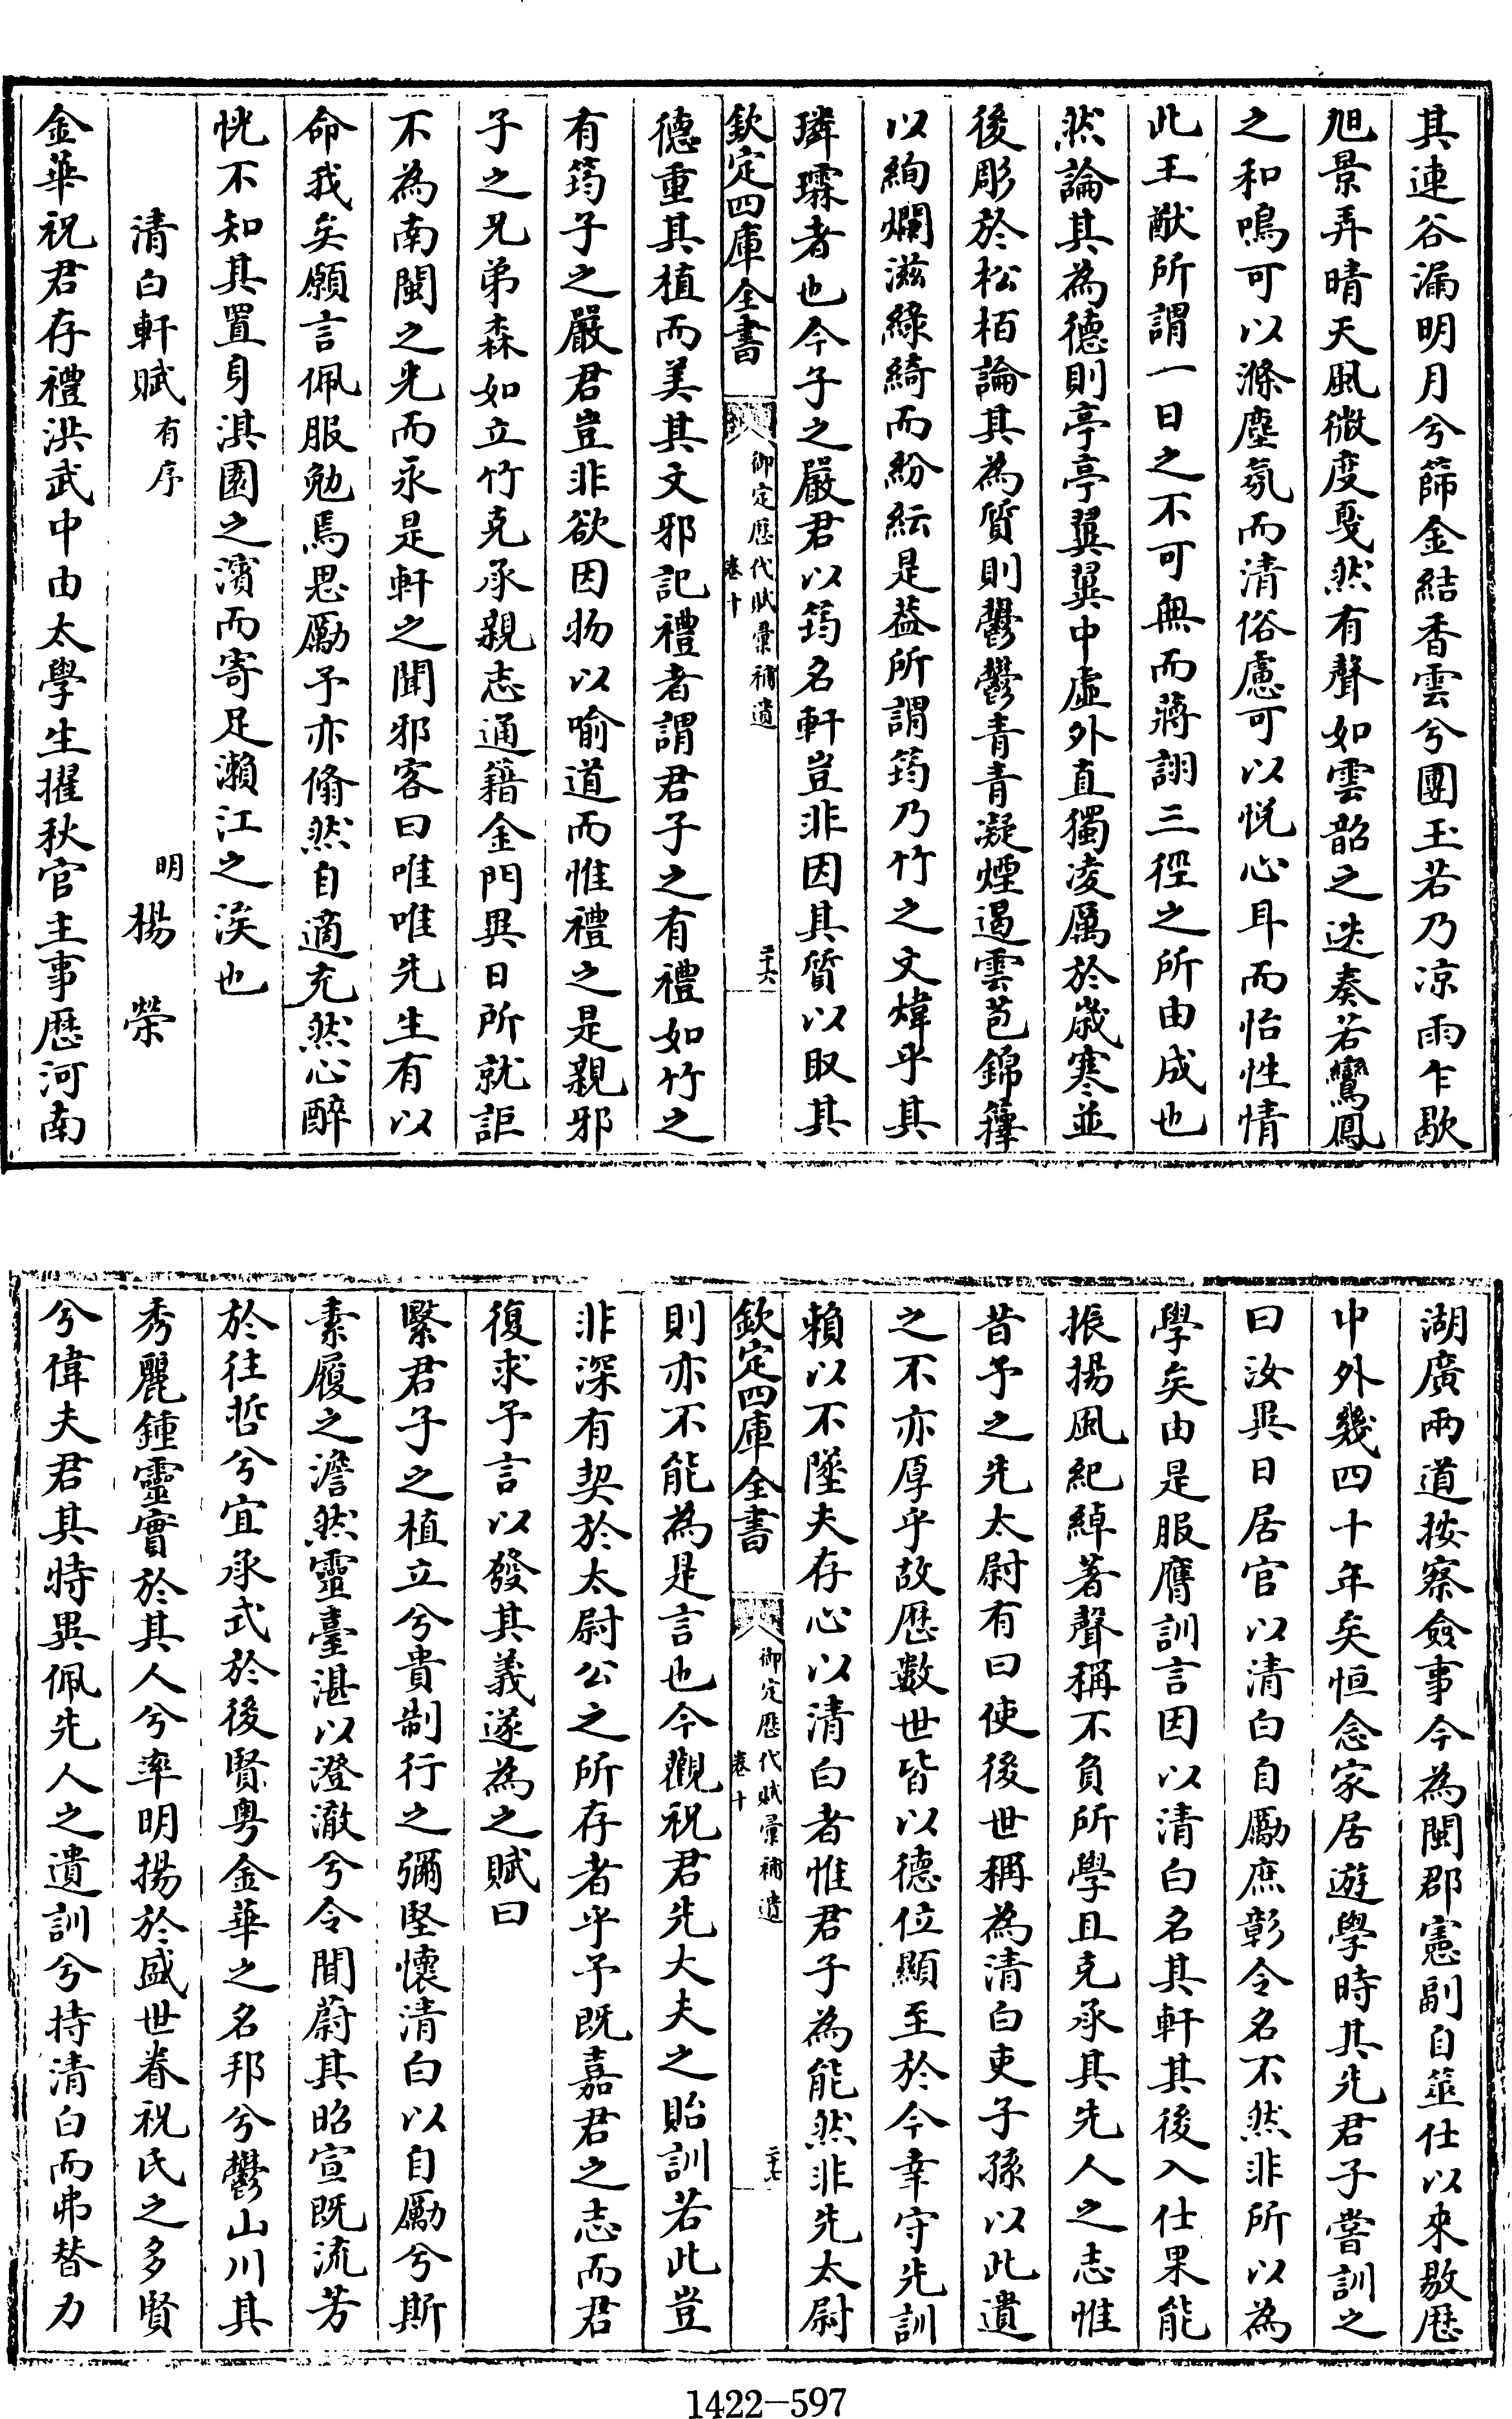 其連谷漏明月兮篩金結香雲兮團玉若乃凉雨乍歇
旭景弄晴天風微度戛然有聲如雲韶之迭奏若鸞鳳
之和鳴可以滌塵氛而清俗慮可以恱心耳而怡性情
此王猷所謂一日之不可無而蔣詡三徑之所由成也
然論其為德則亭亭翼翼中虛外直獨凌厲於歲寒並
後彫於松栢論其為質則鬱鬱青青凝煙遏雲苞錦籜
以絢爛滋綠綺而紛紜是葢所謂筠乃竹之文煒乎其
璘霦者也今子之嚴君以筠名軒豈非因其質以取其
欽定四庫全書
御定歷代賦彙補遺
卷十
二十六
德重其植而美其文邪記禮者謂君子之有禮如竹之
有筠子之嚴君豈非欲因物以喻道而惟禮之是親邪
子之兄弟森如立竹克承親志通籍金門異日所就詎
不為南閩之光而永是軒之聞邪客曰唯唯先生有以
命我矣願言佩服勉焉思勵予亦翛然自適充然心醉
恍不知其置身淇園之濱而寄足瀨江之涘也
清白軒賦有序 明楊榮
金華祝君存禮洪武中由太學生擢秋官主事歷河南
湖廣兩道按察僉事今為閩郡憲副自筮仕以來敭歷
中外幾四十年矣恒念家居遊學時其先君子嘗訓之
曰汝異日居官以清白自勵庶彰令名不然非所以為
學矣由是服膺訓言因以清白名其軒其後入仕果能
振揚風紀綽著聲稱不負所學且克承其先人之志惟
昔予之先太尉有曰使後世稱為清白吏子孫以此遺
之不亦厚乎故歷數世皆以德位顯至於今幸守先訓
賴以不墜夫存心以清白者惟君子為能然非先太尉
欽定四庫全書
御定歷代賦彙補遺
卷十
二十七
則亦不能為是言也今觀祝君先大夫之貽訓若此豈
非深有契於太尉公之所存者乎予既嘉君之志而君
復求予言以發其義遂為之賦曰
繄君子之植立兮貴制行之彌堅懷清白以自勵兮斯
素履之澹然靈臺湛以澄澈兮令聞蔚其昭宣既流芳
於往哲兮宜承式於後賢粵金華之名邦兮鬱山川其
秀麗鍾靈實於其人兮率明揚於盛世眷祝氏之多賢
兮偉夫君其特異佩先人之遺訓兮持清白而弗替力
1422-597